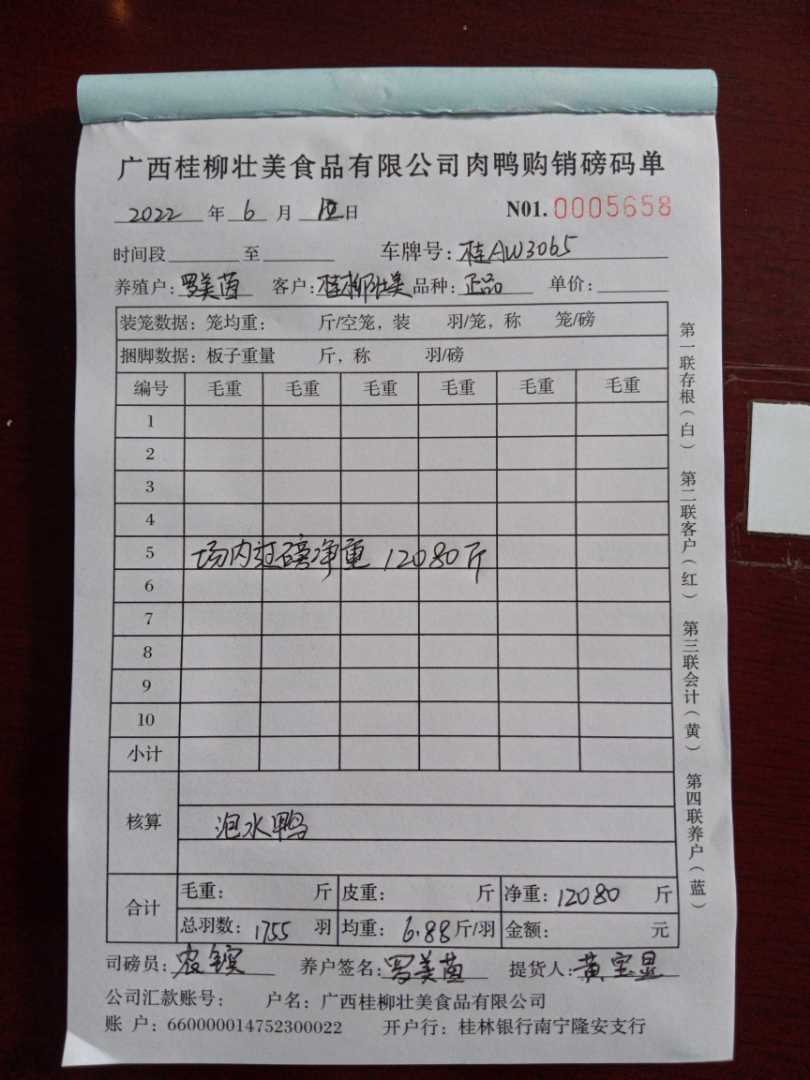 广西桂柳壮美食品有限公司肉鸭购销磅码单
2022 年 6 月 日 N01. 0005658
时间段 至 车牌号: 桂AW3065
养殖户: 罗美茵 客户: 桂柳壮美 品种: 正品 单价:
装笼数据: 笼均重: 斤/空笼, 装 羽/笼, 称 笼/磅
捆脚数据: 板子重量 斤, 称 羽/磅
编号 毛重 毛重 毛重 毛重 毛重 毛重
1
2
3
4
5 场内过磅净重 12080斤
6
7
8
9
10
小计
核算 泡水鸭
合计 毛重: 斤 皮重: 斤 净重: 12080 斤
总羽数: 1755 羽 均重: 6.88 斤/羽 金额: 元
司磅员: 养户签名: 罗美茵 提货人: 黄宝显
公司汇款账号: 户名: 广西桂柳壮美食品有限公司
账 户: 660000014752300022 开户行: 桂林银行南宁隆安支行
第一联存根(白) 第二联客户(红) 第三联会计(黄) 第四联养户(蓝)